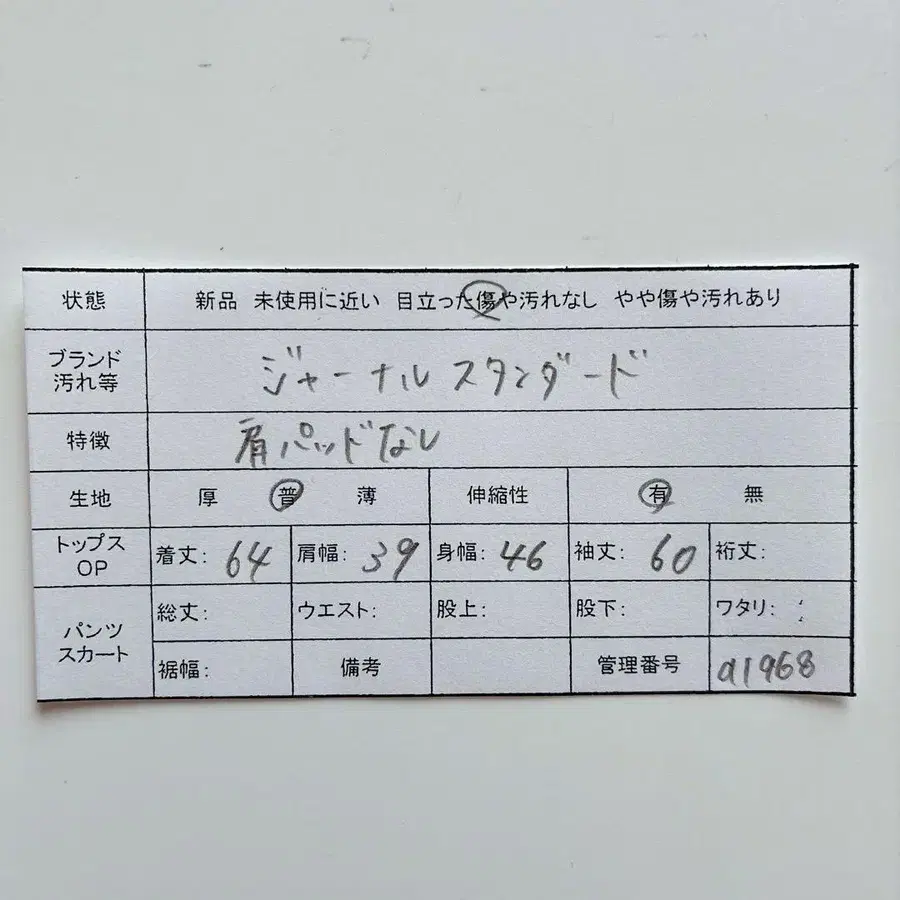 状態 新品 未使用に近い 目立った傷や汚れなし やや傷や汚れあり
ブランド
汚れ等 ジャーナルスタンダード
特徴 肩パッドなし
生地 厚 普 薄 伸縮性 有 無
トップス
OP 着丈: 64 肩幅: 39 身幅: 46 袖丈: 60 裄丈:
総丈: ウエスト: 股上: 股下: ワタリ:
パンツ
スカート
裾幅: 備考 管理番号 a1968